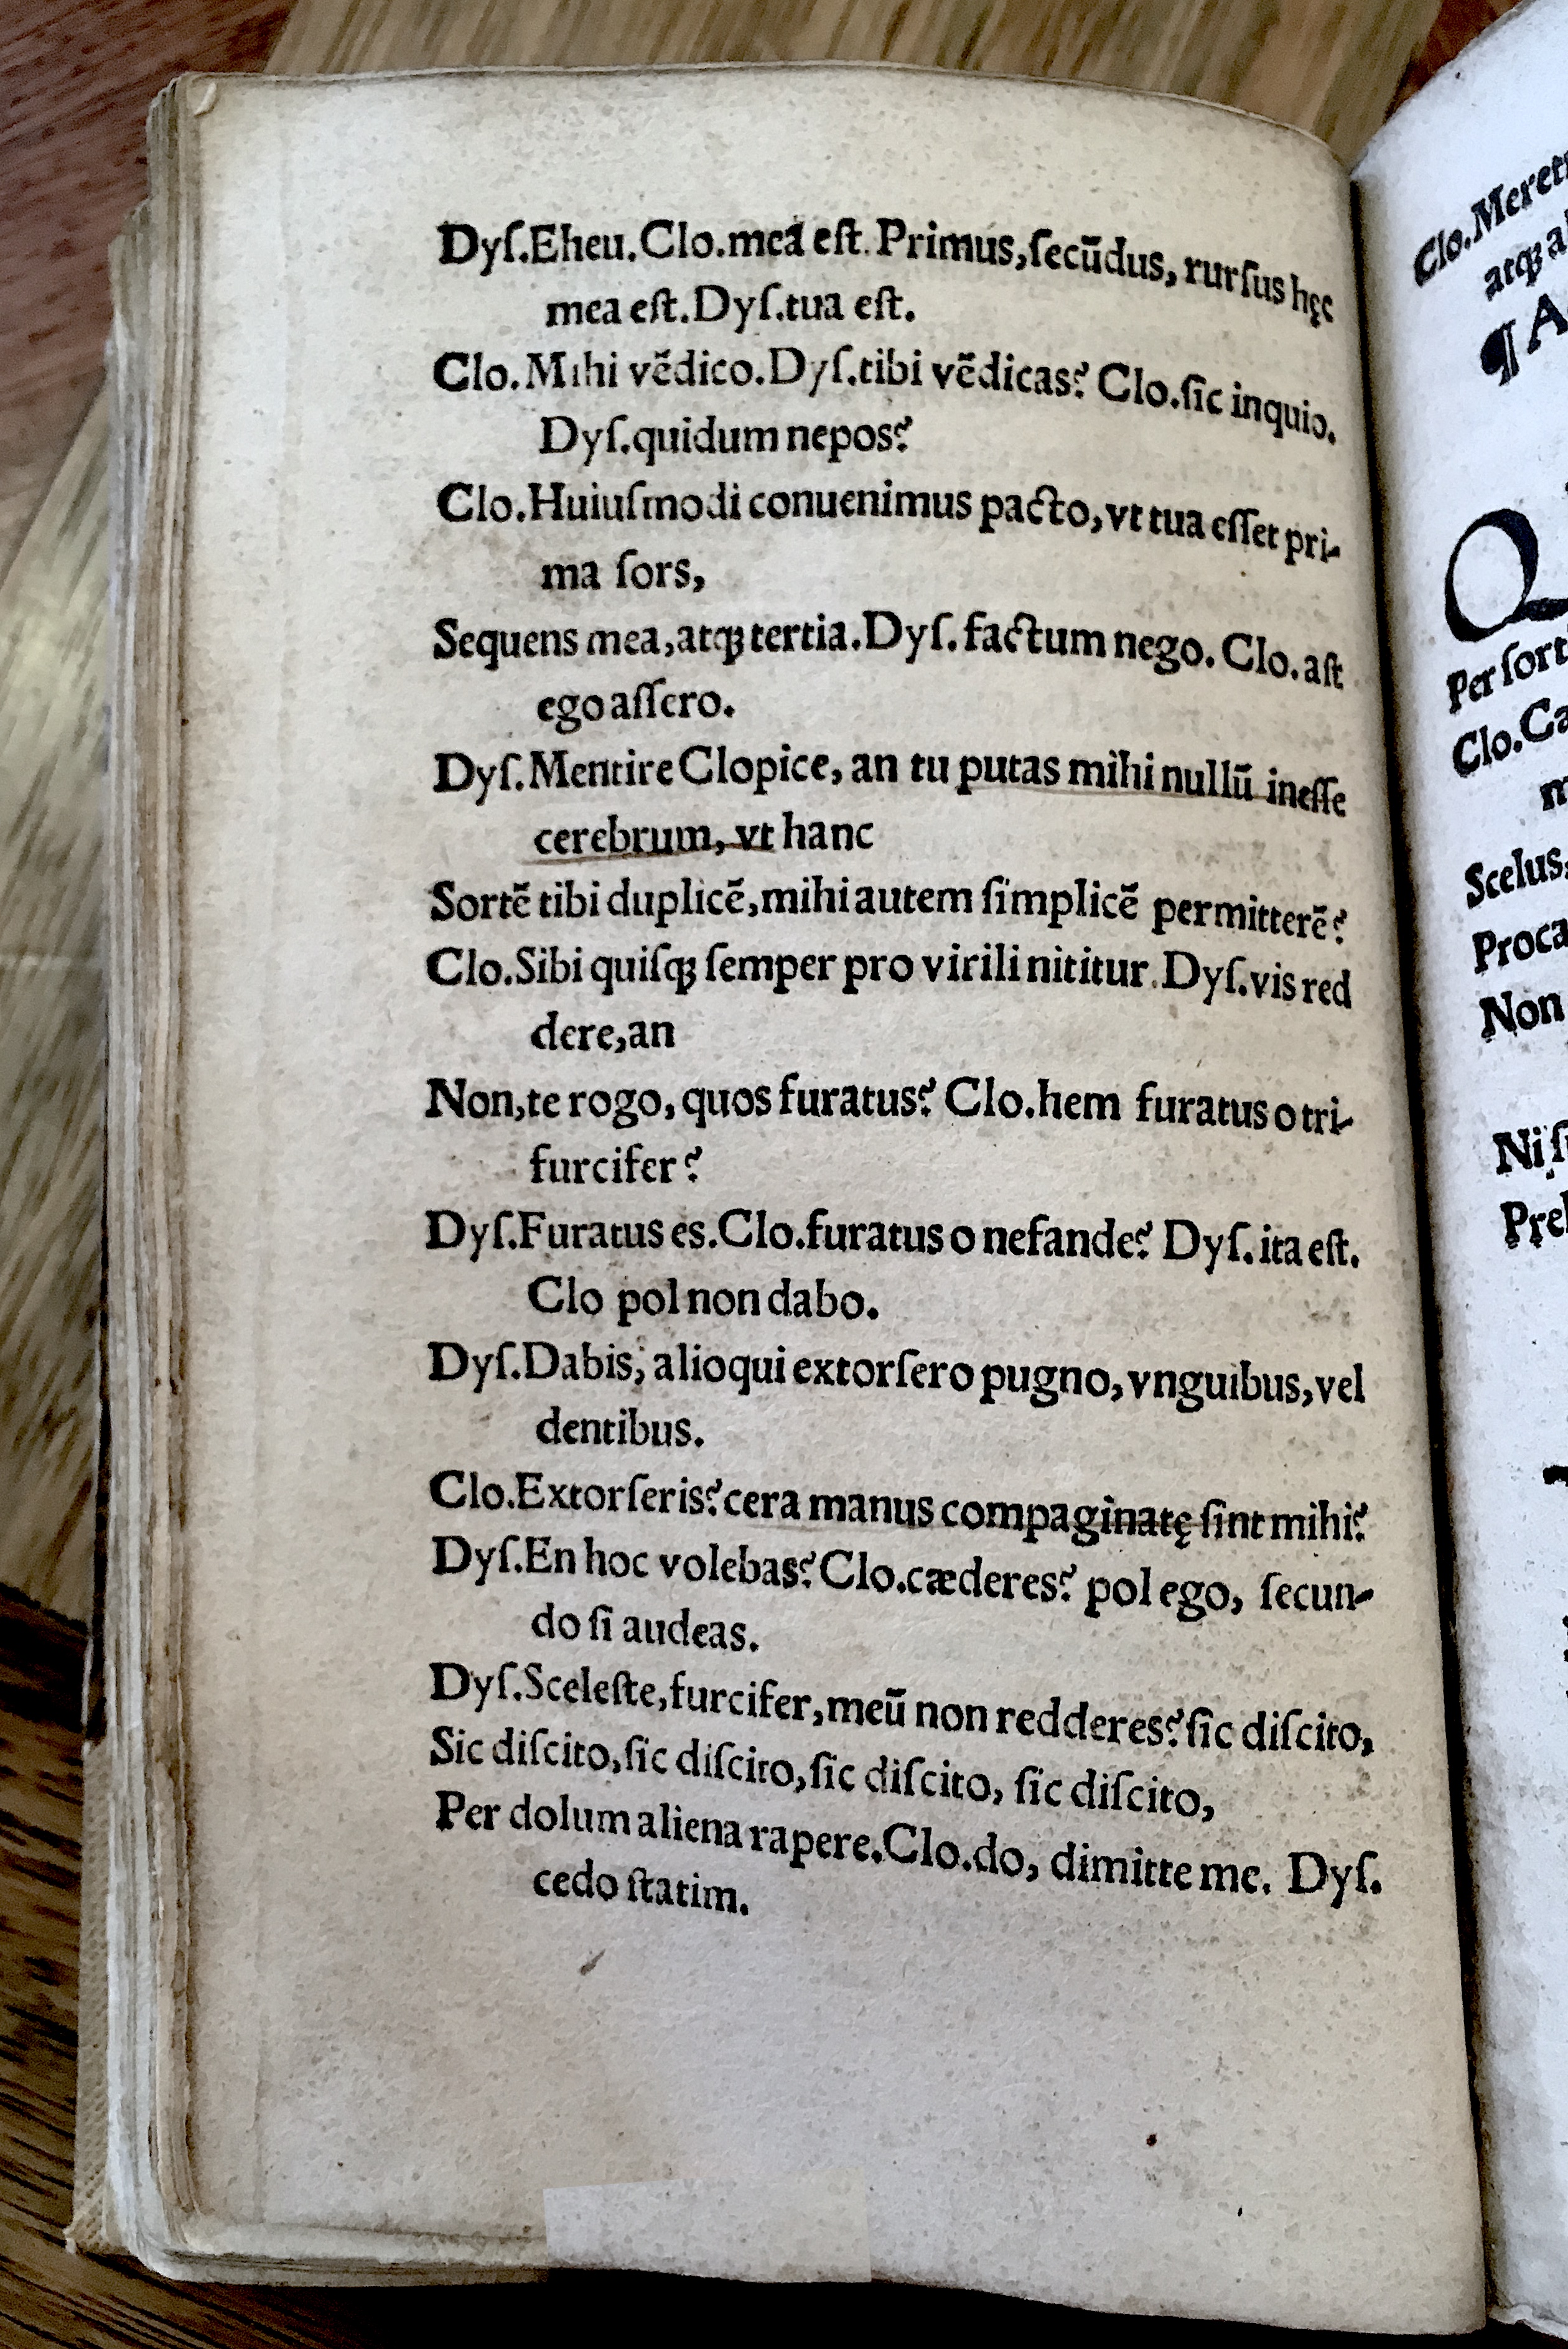 Dyſ.Eheu.Clo.mea eſt. Primus,ſecūdus, rurſus hęc
mea eſt.Dyſ.tua eſt.
Clo.Mihi vēdico.Dyſ.tibi vēdicas? Clo.ſic inquio.
Dyſ.quidum nepos?
Clo.Huiuſmodi conuenimus pacto,vt tua eſſet pri-
ma ſors,
Sequens mea,atqꝫ tertia.Dyſ. factum nego. Clo.aſt
ego aſſero.
Dyſ.Mentire Clopice, an tu putas mihi nullū ineſſe
cerebrum, vt hanc
Sortē tibi duplicē,mihi autem ſimplicē permitterē?
Clo.Sibi quiſqꝫ ſemper pro virili nititur.Dyſ.vis red
dere,an
Non,te rogo, quos furatus? Clo.hem furatus o tri-
furcifer?
Dyſ.Furatus es.Clo.furatus o nefande? Dyſ.ita eſt.
Clo pol non dabo.
Dyſ.Dabis, alioqui extorſero pugno,vnguibus,vel
dentibus.
Clo.Extorſeris?cera manus compaginatę ſint mihi?
Dyſ.En hoc volebas?Clo.cæderes? pol ego, ſecun-
do ſi audeas.
Dyſ.Sceleſte,furcifer,meū non redderes?ſic diſcito,
Sic diſcito,ſic diſcito,ſic diſcito, ſic diſcito,
Per dolum aliena rapere.Clo.do, dimitte me. Dyſ.
cedo ſtatim.
Clo.
¶ A
Q
Per
Clo.
Scelus,
Non